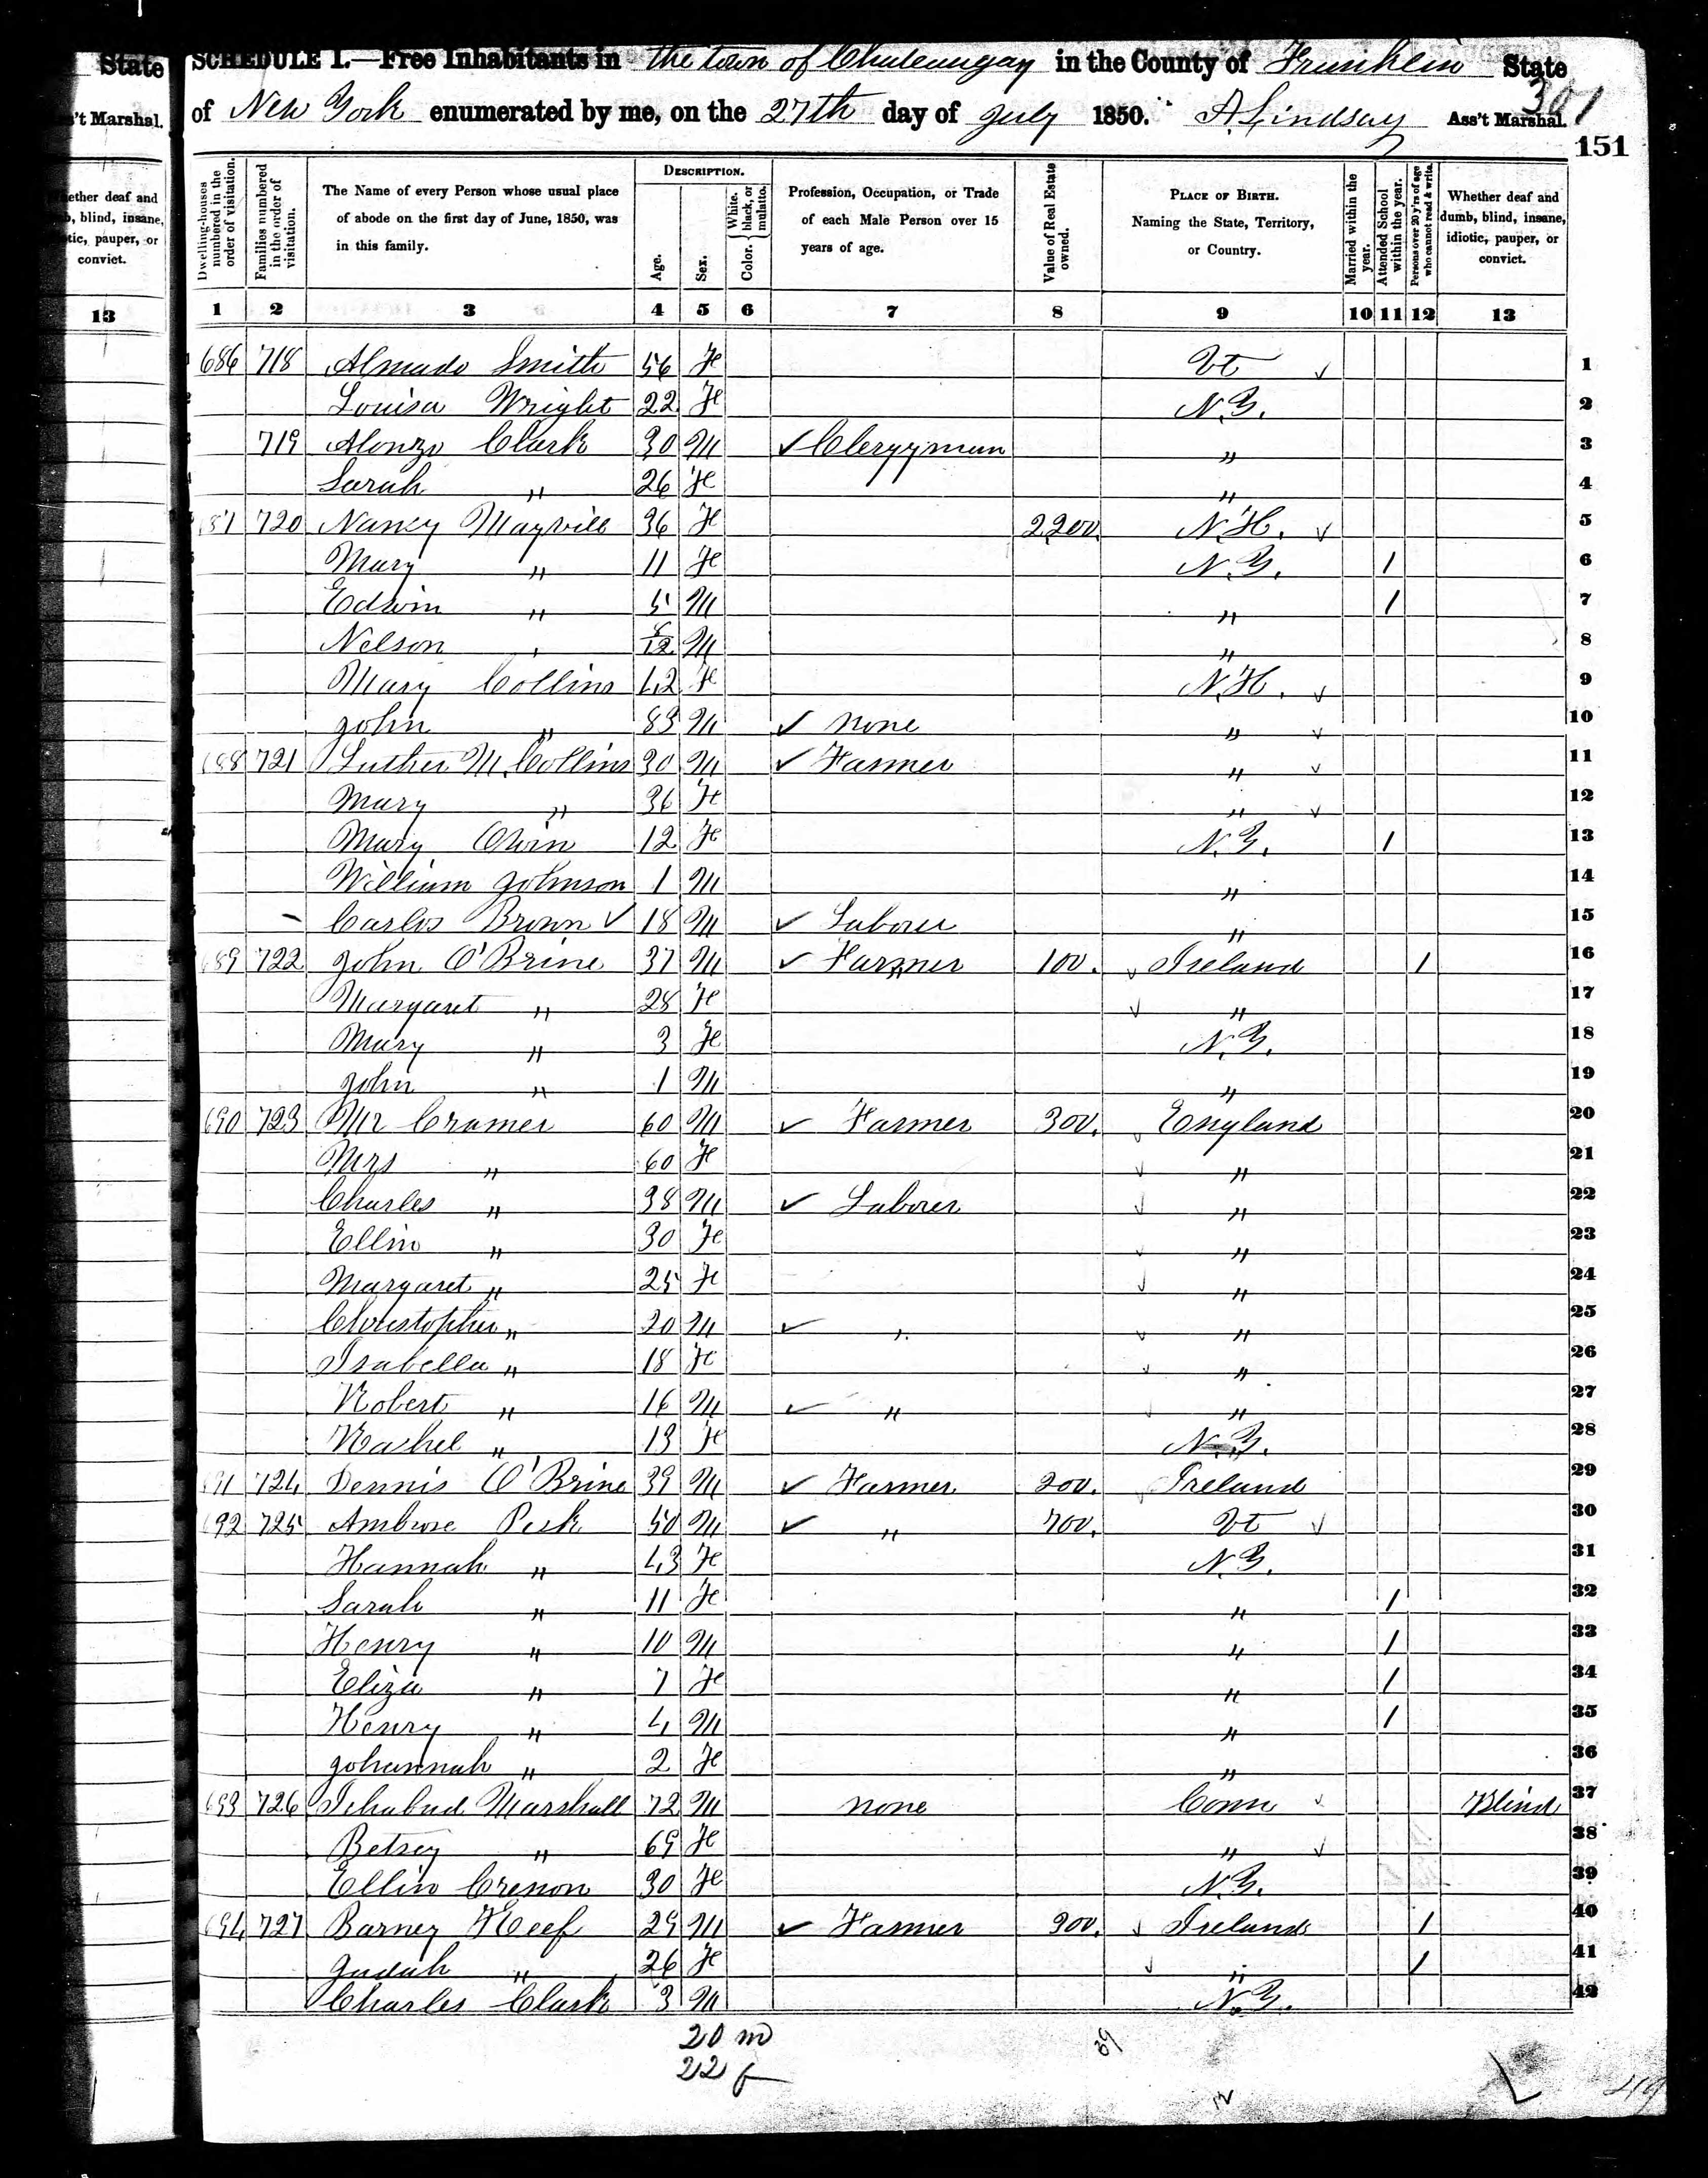 State
SCHEDULE I.—Free Inhabitants in the town of Chateaugay in the County of Franklin State
of New York enumerated by me, on the 27th day of July 1850. A. Lindsay Ass't Marshal.
301
151
's't Marshal.
Whether deaf and dumb, blind, insane, idiotic, pauper, or convict.
13
Dwelling-houses numbered in the order of visitation.
Families numbered in the order of visitation.
The Name of every Person whose usual place of abode on the first day of June, 1850, was in this family.
DESCRIPTION.
Age.
Sex.
Color. { White, black, or mulatto.
Profession, Occupation, or Trade of each Male Person over 15 years of age.
Value of Real Estate owned.
PLACE OF BIRTH. Naming the State, Territory, or Country.
Married within the year.
Attended School within the year.
Persons over 20 y'rs of age who cannot read & write.
Whether deaf and dumb, blind, insane, idiotic, pauper, or convict.
1 2 3 4 5 6 7 8 9 10 11 12 13
686 718 Almado Smith 56 F Vt ✓ 1
Louisa Wright 22 F N.Y. 2
719 Alonzo Clark 30 M ✓ Clergyman " 3
Sarah " 26 F " 4
687 720 Nancy Mayvill 36 F 2200. N.H. ✓ 5
Mary " 11 F N.Y. 1 6
Edwin " 5 M " 1 7
Nelson " 8/12 M " 8
Mary Collins 42 F N.H. ✓ 9
John " 83 M ✓ none " ✓ 10
688 721 Luther M. Collins 30 M ✓ Farmer " ✓ 11
Mary " 36 F " ✓ 12
Mary Orvin 12 F N.Y. 1 13
William Johnson 1 M " 14
Carlos Brown ✓ 18 M ✓ Laborer " 15
689 722 John O'Brine 37 M ✓ Farmer 100. ✓ Ireland 1 16
Margaret " 28 F ✓ " 17
Mary " 3 F N.Y. 18
John " 1 M " 19
690 723 Mr Cramer 60 M ✓ Farmer 300. ✓ England 20
Mrs " 60 F ✓ " 21
Charles " 38 M ✓ Laborer ✓ " 22
Ellin " 30 F ✓ " 23
Margaret " 25 F ✓ " 24
Christopher " 20 M ✓ " ✓ " 25
Isabella " 18 F ✓ " 26
Robert " 16 M ✓ " ✓ " 27
Rachel " 13 F N.Y. 28
691 724 Dennis O'Brine 39 M ✓ Farmer 200. ✓ Ireland 29
692 725 Ambrose Peck 50 M ✓ " 700. Vt ✓ 30
Hannah " 43 F N.Y. 31
Sarah " 11 F " 1 32
Henry " 10 M " 1 33
Eliza " 7 F " 1 34
Henry " 4 M " 1 35
Johannah " 2 F " 36
693 726 Ichabud Marshall 72 M none Conn ✓ Blind 37
Betsey " 69 F " ✓ 38
Ellin 30 F N.Y. 39
694 727 Barney Keef 29 M ✓ Farmer 300. ✓ Ireland 1 40
Judah " 26 F ✓ " 1 41
Charles Clark 3 M N.Y. 42
20 m
22 f
39
12